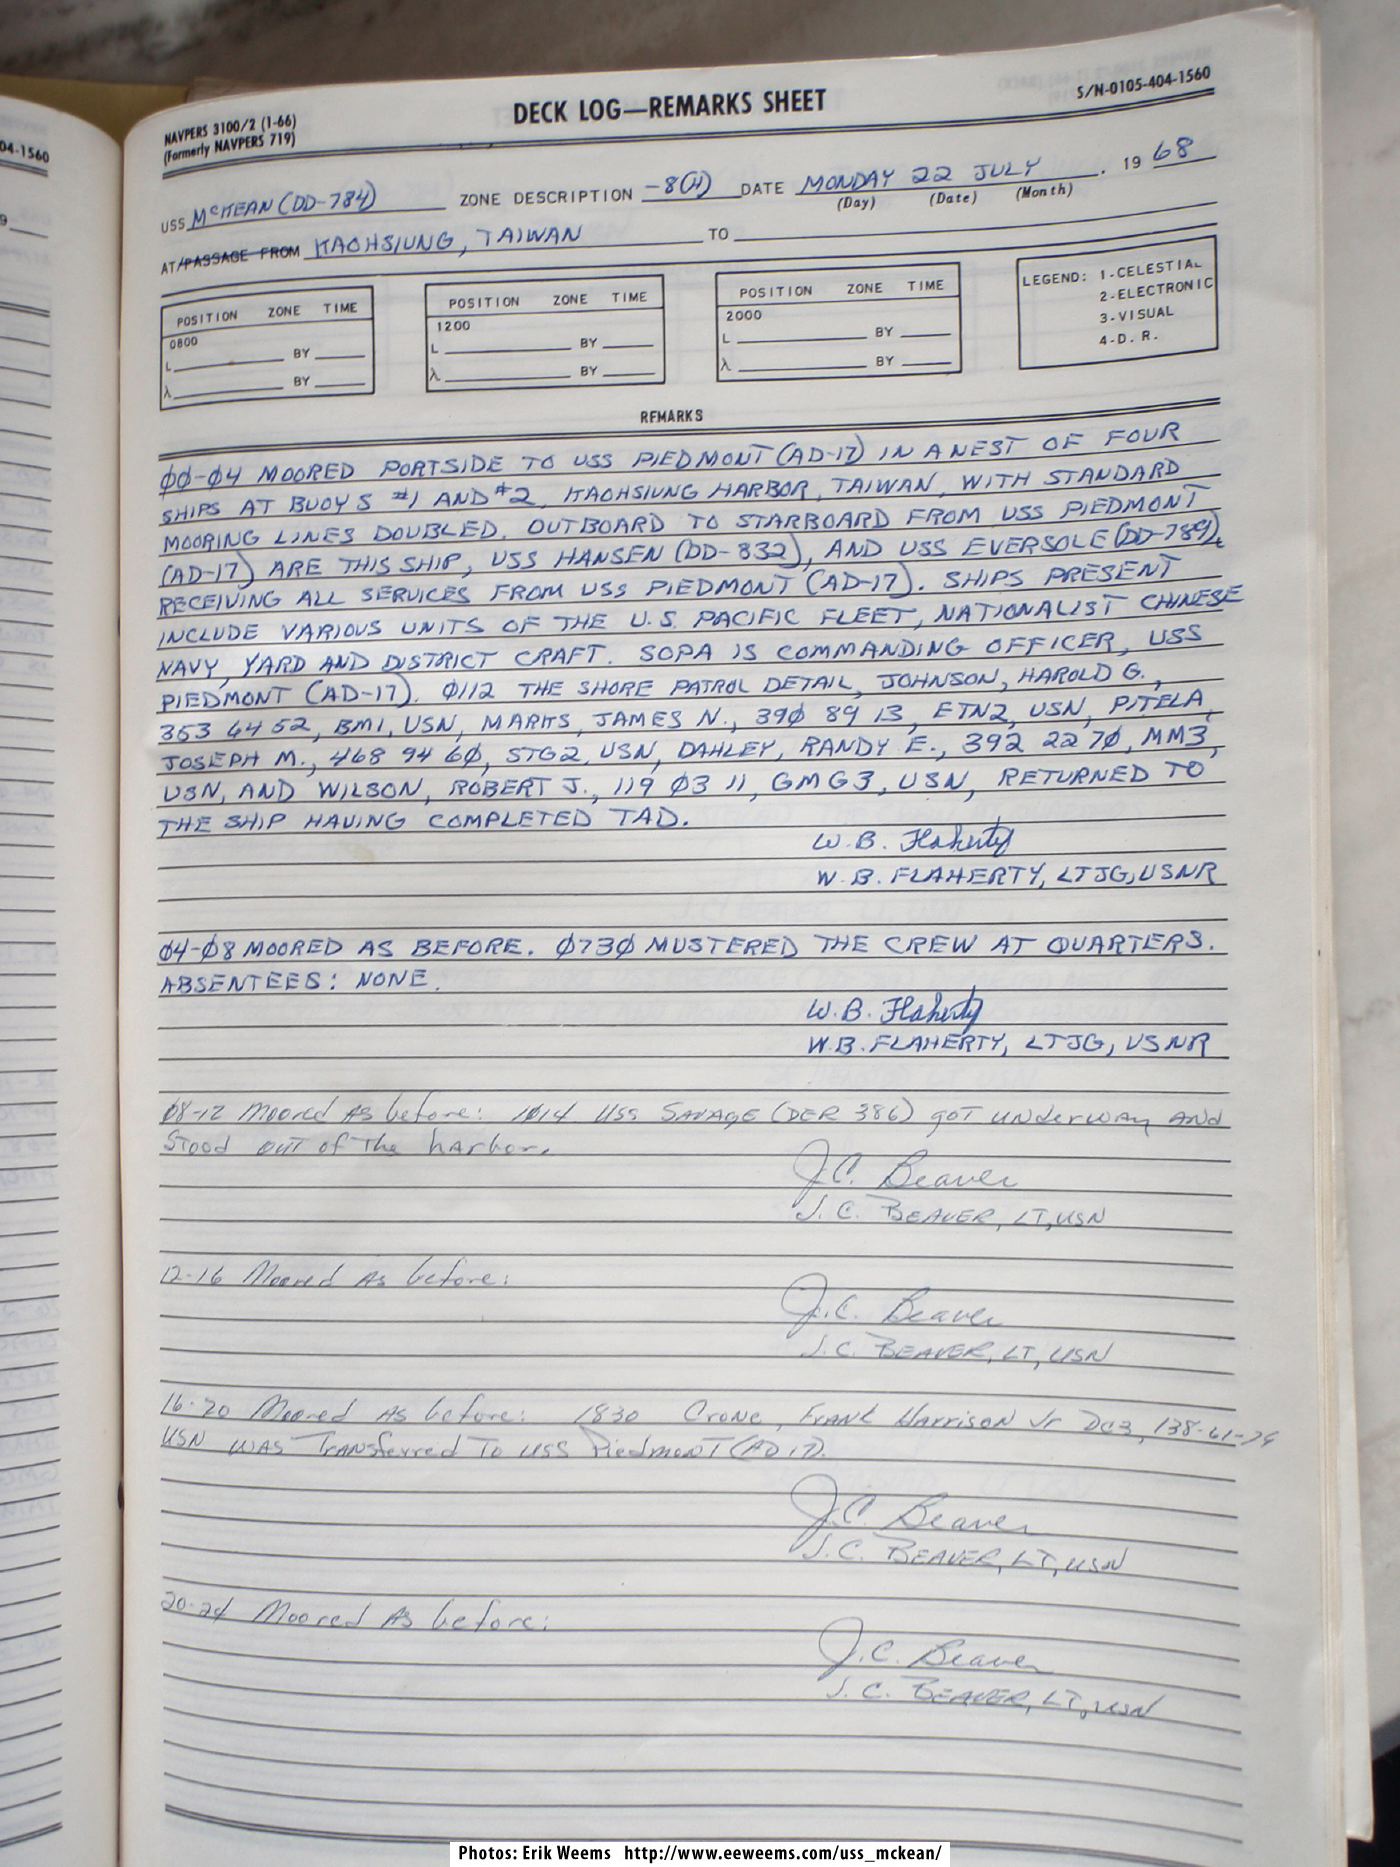 04-1560
NAVPERS 3100/2 (1-66)
(Formerly NAVPERS 719)
DECK LOG—REMARKS SHEET
S/N-0105-404-1560
USS McKEAN (DD-784) ZONE DESCRIPTION -8(H) DATE MONDAY 22 JULY . 19 68
(Day) (Date) (Month)
AT/PASSAGE FROM KAOHSIUNG, TAIWAN TO
POSITION ZONE TIME
0800
L BY
λ BY
POSITION ZONE TIME
1200
L BY
λ BY
POSITION ZONE TIME
2000
L BY
λ BY
LEGEND: 1-CELESTIAL
2-ELECTRONIC
3-VISUAL
4-D. R.
REMARKS
00-04 MOORED PORTSIDE TO USS PIEDMONT (AD-17) IN A NEST OF FOUR
SHIPS AT BUOYS #1 AND #2, KAOHSIUNG HARBOR, TAIWAN, WITH STANDARD
MOORING LINES DOUBLED. OUTBOARD TO STARBOARD FROM USS PIEDMONT
(AD-17) ARE THIS SHIP, USS HANSEN (DD-832), AND USS EVERSOLE (DD-789).
RECEIVING ALL SERVICES FROM USS PIEDMONT (AD-17). SHIPS PRESENT
INCLUDE VARIOUS UNITS OF THE U.S. PACIFIC FLEET, NATIONALIST CHINESE
NAVY, YARD AND DISTRICT CRAFT. SOPA IS COMMANDING OFFICER, USS
PIEDMONT (AD-17). 0112 THE SHORE PATROL DETAIL, JOHNSON, HAROLD G.,
353 64 52, BM1, USN, MARKS, JAMES N., 390 89 13, ETN2, USN, PITELA,
JOSEPH M., 468 94 60, STG2, USN, DAHLEY, RANDY E., 392 22 70, MM3,
USN, AND WILSON, ROBERT J., 119 03 11, GMG3, USN, RETURNED TO
THE SHIP HAVING COMPLETED TAD.
W. B. Flaherty
W. B. FLAHERTY, LTJG, USNR
04-08 MOORED AS BEFORE. 0730 MUSTERED THE CREW AT QUARTERS.
ABSENTEES: NONE.
W. B. Flaherty
W. B. FLAHERTY, LTJG, USNR
08-12 Moored As before: 1014 USS SAVAGE (DER 386) got underway AND
Stood out of The harbor.
J.C. Beaver
J. C. BEAVER, LT, USN
12-16 Moored As before:
J.C. Beaver
J. C. BEAVER, LT, USN
16-20 Moored As before: 1830 Crone, FrAnk HArrison Jr DC3, 138-61-74
USN WAS TrANsferred To USS PiedmonT (AD 17).
J.C. Beaver
J. C. BEAVER, LT, USN
20-24 Moored As before:
J.C. Beaver
J. C. BEAVER, LT, USN
Photos: Erik Weems http://www.eeweems.com/uss_mckean/